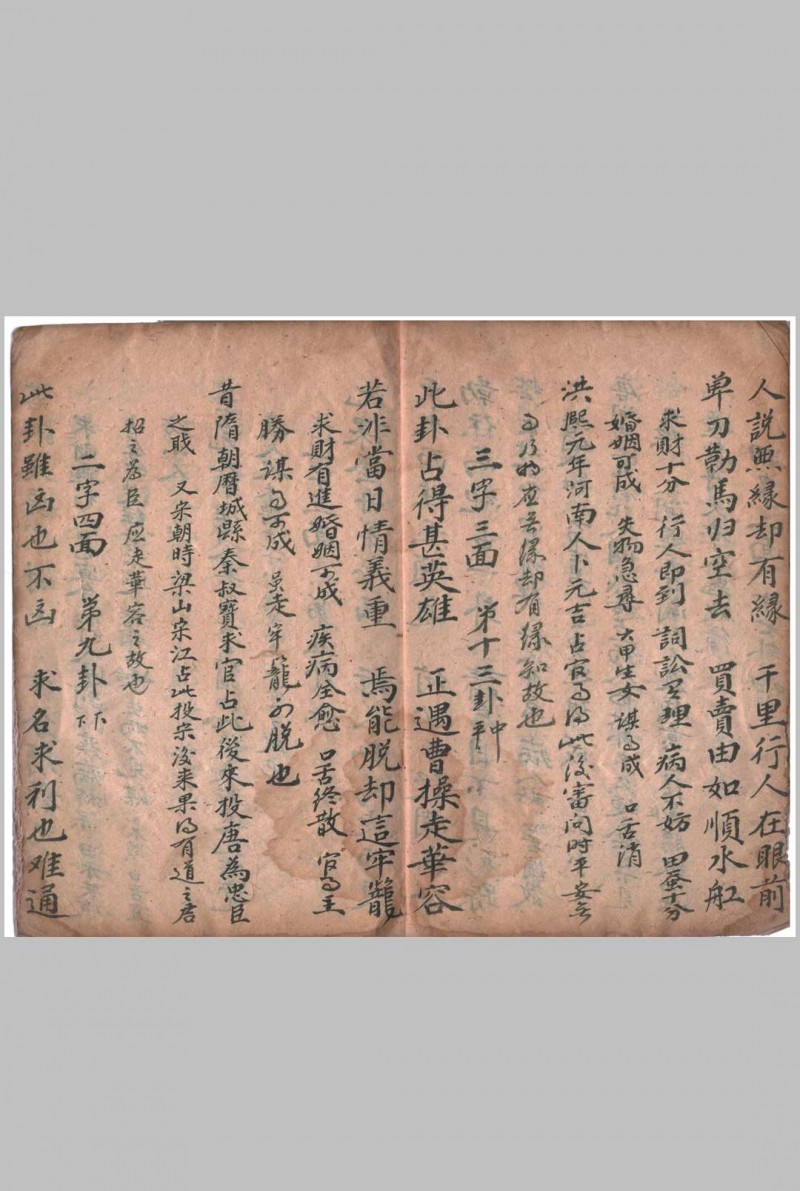 人説無緣却有緣 千里行人在眼前
单刀勒馬归空去 買賣由如順水舡
求財十分 行人即到 詞訟 理 病人不妨 田蚕十分
婚姻可成 失物急尋 六甲生女 謀事成 口舌消
洪熙元年河南人卜元吉占官事得此後審问時平安無
事乃為應無缘却有缘知故也
三字三面 第十三卦 中平
此卦占得甚英雄 正遇曹操走華容
若非當日情義重 焉能脱却這牢籠
求財有進 婚姻可成 疾病全愈 口舌終散 官事主
勝 謀事可成 虽走牢籠可脱也
昔隋朝曆城縣秦叔寶求官占此後來投唐為忠臣
之戝 又宋朝時梁山宋江占此投宋後来果得有道之君
招之為臣 应走華容之故也
二字四面 第九卦 下下
此卦雖凶也不凶 求名求利也难通